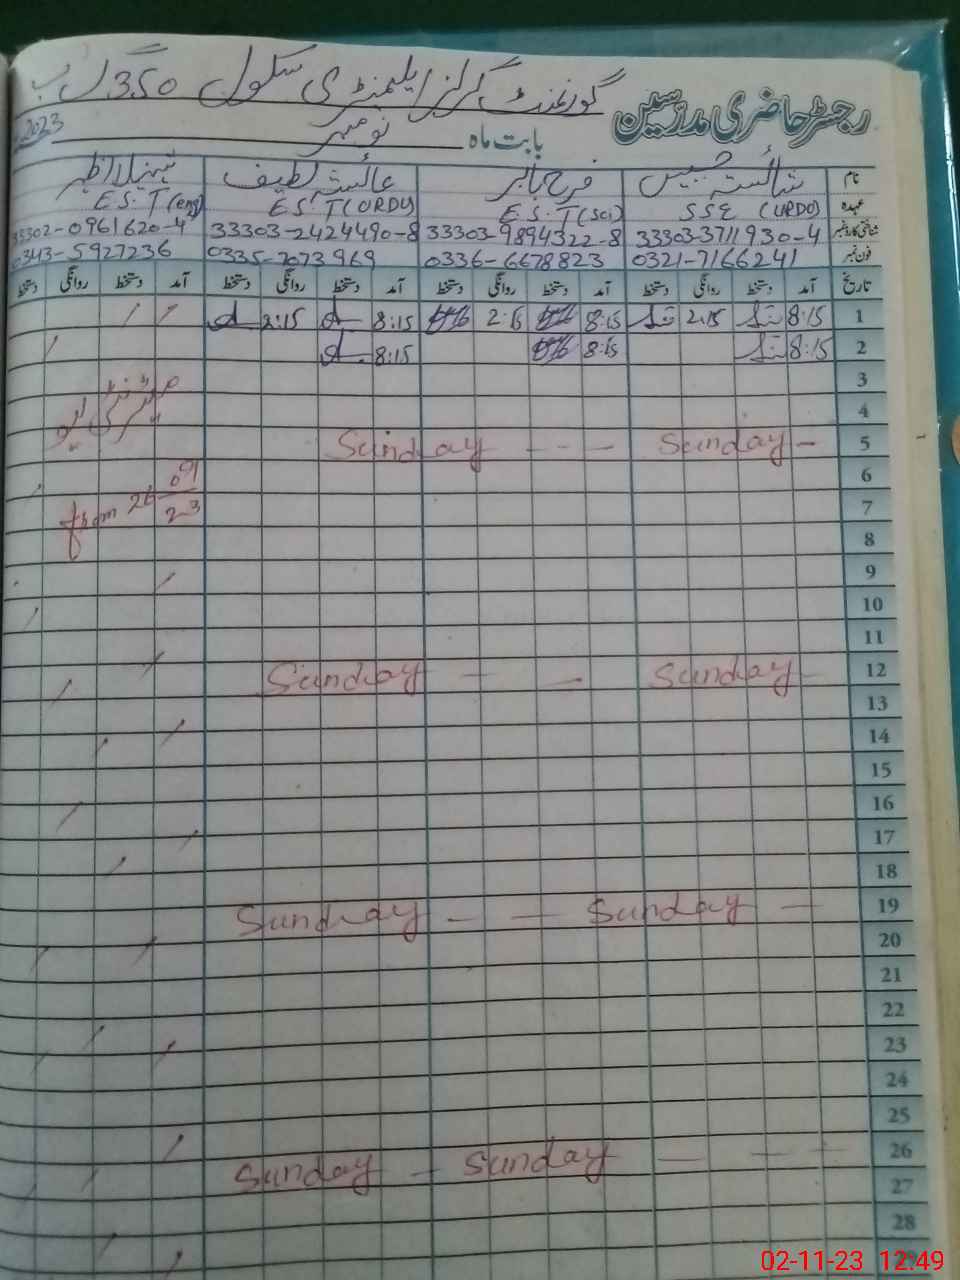 رجسٹر حاضری مدرسین گورنمنٹ گرلز ایلیمنٹری سکول 350 گ ب
بابت ماہ نومبر 2023
نام شائستہ فرح جابر عائشہ لطیف
عہدہ SSE (URDO) E.S.T(Sci) E.S.T(ORDU) E.S.T(eng)
شناختی کارڈ نمبر 33303-3711930-4 33303-9894322-8 33303-2424490-8 33302-0961620-4
فون نمبر 0321-7166241 0336-6678823 0335-7073969 0343-5927236
تاریخ آمد دستخط روانگی دستخط آمد دستخط روانگی دستخط آمد دستخط روانگی دستخط آمد دستخط روانگی دستخط
1 8:15 2:15 8:15 2:15 8:15 2:15
2 8:15 8:15 8:15
3 میٹرنٹی لیو
4
5 Sunday - Sunday - - -
6
7 from 26 09 23
8
9
10
11
12 Sunday - Sunday - -
13
14
15
16
17
18
19 Sunday - Sunday - -
20
21
22
23
24
25
26 Sunday - Sunday - - -
27
28
29
02-11-23 12:49